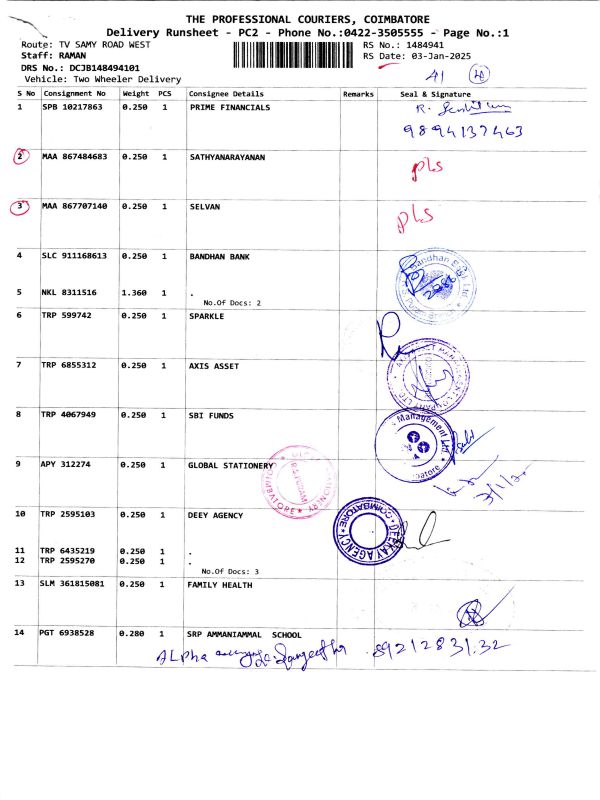 THE PROFESSIONAL COURIERS, COIMBATORE
Delivery Runsheet - PC2 - Phone No.:0422-3505555 - Page No.:1
Route: TV SAMY ROAD WEST RS No.: 1484941
Staff: RAMAN RS Date: 03-Jan-2025
DRS No.: DCJB148494101
Vehicle: Two Wheeler Delivery 41
S No Consignment No Weight PCS Consignee Details Remarks Seal & Signature
1 SPB 10217863 0.250 1 PRIME FINANCIALS
9894137463
2 MAA 867484683 0.250 1 SATHYANARAYANAN
pls
3 MAA 867707140 0.250 1 SELVAN
pls
4 SLC 911168613 0.250 1 BANDHAN BANK
5 NKL 8311516 1.360 1 .
No.Of Docs: 2
6 TRP 599742 0.250 1 SPARKLE
7 TRP 6855312 0.250 1 AXIS ASSET
8 TRP 4067949 0.250 1 SBI FUNDS
Management Ltd
9 APY 312274 0.250 1 GLOBAL STATIONERY
10 TRP 2595103 0.250 1 DEEY AGENCY
DEEKAY AGENCY COIMBATORE
11 TRP 6435219 0.250 1 .
12 TRP 2595270 0.250 1 .
No.Of Docs: 3
13 SLM 361815081 0.250 1 FAMILY HEALTH
14 PGT 6938528 0.280 1 SRP AMMANIAMMAL SCHOOL
ALPha 8921283132